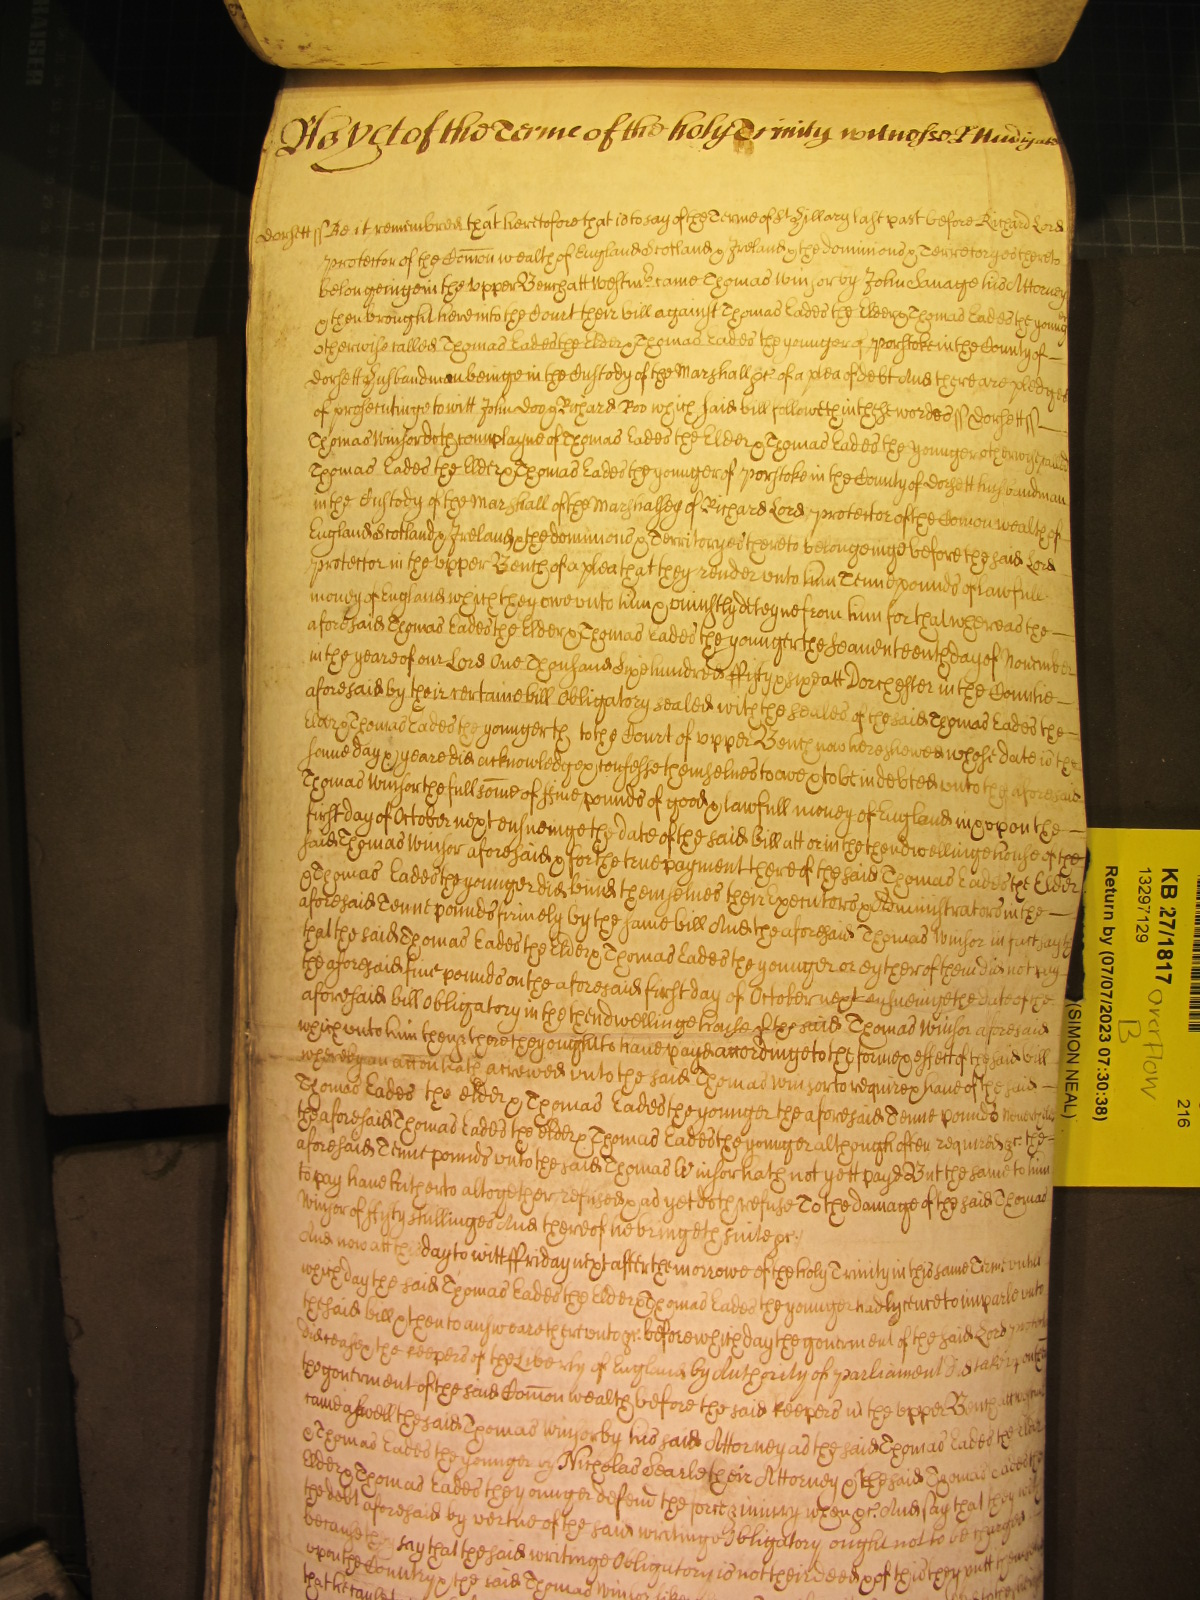 As yet of the Terme of the holy Trinity witnesse R Nudigate
Dorsett ss Be it remembred that heretofore that is to say of the Terme of St Hillary last past before Richard Lord
Protector of the Comon wealth of England Scotland & Ireland & the dominions & Territoryes thereto
belongeinge in the upper Bench att Westmr came Thomas Winsor by John Savage his Attorney
& then brought here into the Court their bill against Thomas Eades the Elder & Thomas Eades the younger
otherwise called Thomas Eades the Elder & Thomas Eades the younger of Porstoke in the County of
Dorsett Husbandman beinge in the Custody of the Marshall &c of a plea of debt And there are pledges
of prosecutinge to witt John Doo & Richard Roo which said bill followeth in these wordes ss Dorsett ss
Thomas Winsor doth complayne of Thomas Eades the Elder & Thomas Eades the younger otherwise called
Thomas Eades the Elder & Thomas Eades the younger of Porstoke in the County of Dorsett husbandman
in the Custody of the Marshall of the Marshallsey of Richard Lord Protector of the Comon wealth of
England Scotland & Ireland & the dominions & Territoryes thereto belongeinge before the said Lord
Protector in the upper Bench of a plea that they render unto him Tenne pounds of lawfull
money of England which they owe unto him & uniustly deteyne from him for that whereas the
aforesaid Thomas Eades the Elder & Thomas Eades the younger the seaventeenth day of November
in the yeare of our Lord One Thousand Sixe hundred ffifty & sixe att Dorchester in the Countie
aforesaid by their certaine bill Obligatory sealed with the seales of the said Thomas Eades the
Elder & Thomas Eades the younger & to the Court of upper Bench now here shewed whose date is the
same day & yeare did acknowledge & confesse themselves to owe & to be indebted unto the aforesaid
Thomas Winsor the full some of ffive pounds of good & lawfull money of England in & upon the
first day of October next ensueinge the date of the said bill att or in the then dwellinge house of the
said Thomas Winsor aforesaid & for the true payment thereof the said Thomas Eades the Elder
& Thomas Eades the younger did bind themselves their Executors & Administrators in the
aforesaid Tenne pounds firmely by the same bill And the aforesaid Thomas Winsor in fact sayth
that the said Thomas Eades the Elder & Thomas Eades the younger or eyther of them did not pay
the aforesaid five pounds on the aforesaid first day of October next ensueinge the date of the
aforesaid bill Obligatory in the then dwellinge house of the said Thomas Winsor aforesaid
which unto him then & there they ought to have payd accordinge to the forme & effect of the said bill
whereby an accon hath acrewed unto the said Thomas Winsor to require & have of the said
Thomas Eades the elder & Thomas Eades the younger the aforesaid Tenne pounds Neverthelesse
the aforesaid Thomas Eades the elder & Thomas Eades the younger although often required &c the
aforesaid Tenne pounds unto the said Thomas Winsor hath not yett payd But the same to him
to pay have hitherto altogether refused & as yet doth refuse To the damage of the said Thomas
Winsor of ffifty shillinges And thereof he bringeth suite &c
And now att this day to witt ffriday next after the morrowe of the holy Trinity in this same Terme untill
which day the said Thomas Eades the Elder & Thomas Eades the younger had lycence to imparle unto
the said bill & then to answeare thereunto &c before which day the goverment of the said Lord Protector
did cease & the keepers of the Liberty of England by Authority of parliament did take upon them
the goverment of the said Comon wealth before the said keepers in the upper Bench att
came aswell the said Thomas Winsor by his said Attorney as the said Thomas Eades the elder
& Thomas Eades the younger by Nicholas Searle their Attorney & the said Thomas Eades the
Elder & Thomas Eades the younger defend the force & iniury when &c And say that they
the debt aforesaid by vertue of the said writinge Obligatory ought not to be charged
because they say that the said writinge Obligatory is not their deed & of this they putt themselves
upon the Country & the said Thomas Winsor likewise
KB 27/1817
13297129
Return by (07/07/2023 07:30:38)
(SIMON NEAL)
216
overflow
B